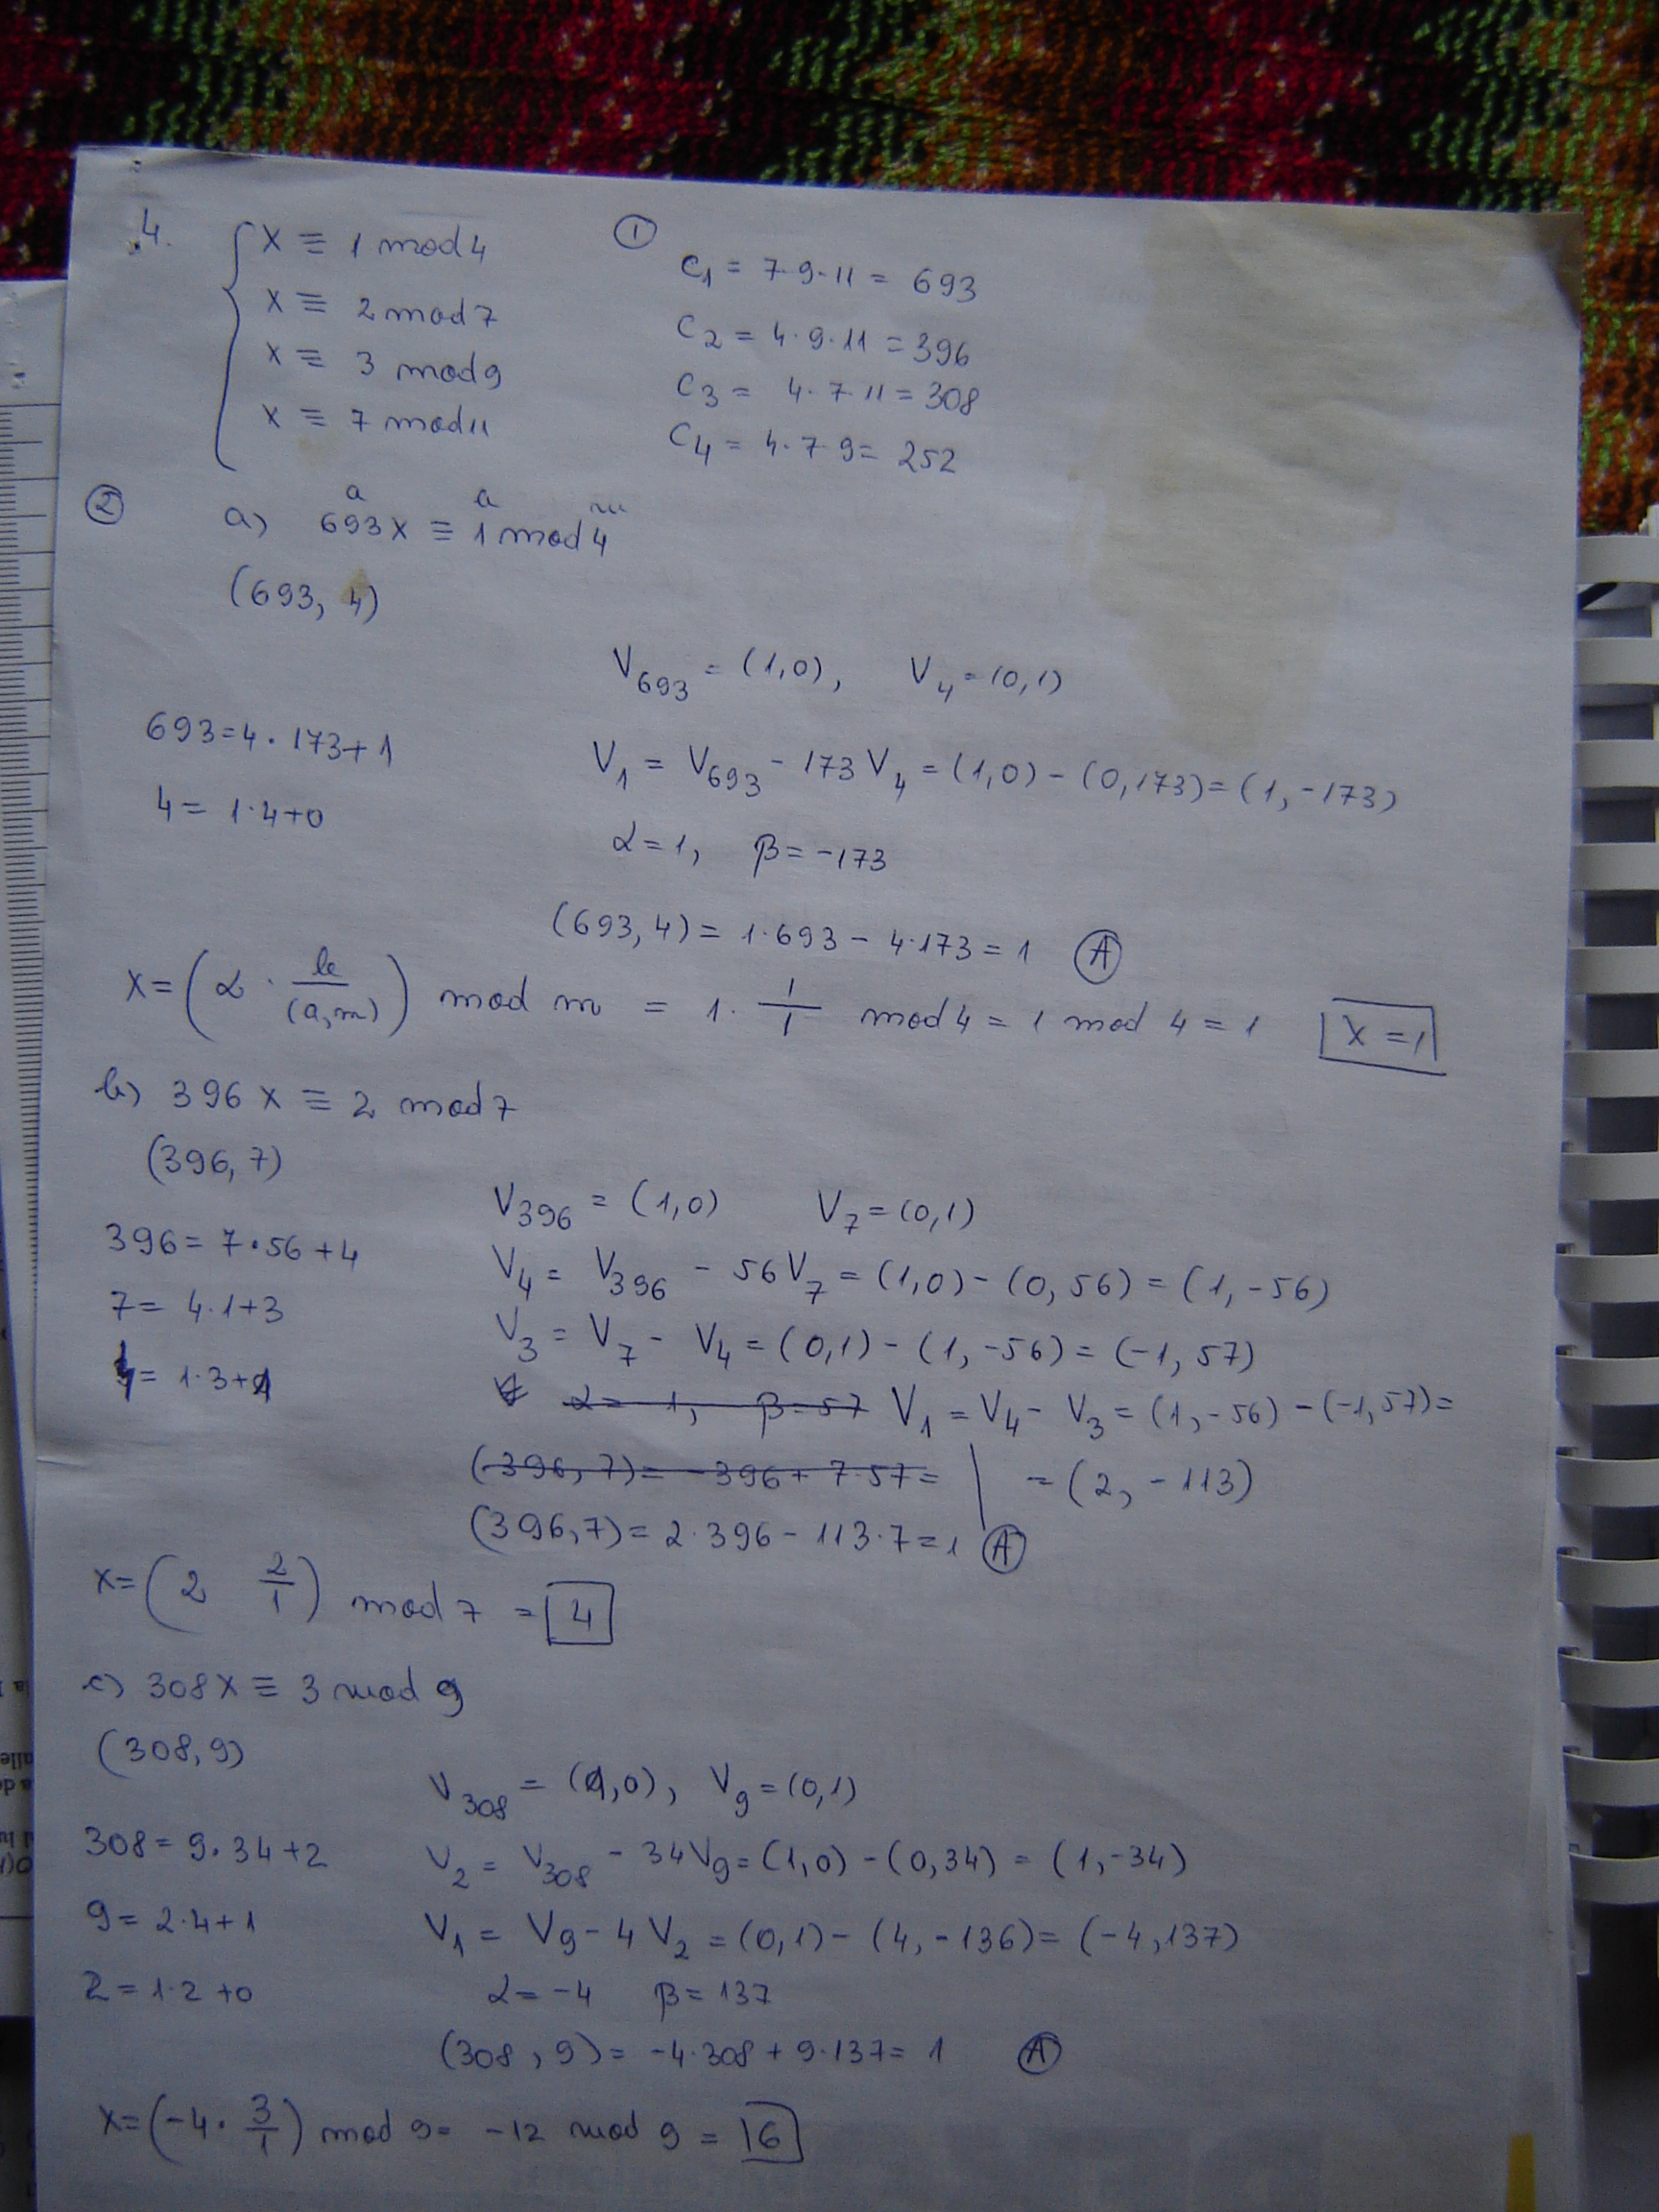 4. { x ≡ 1 mod 4
x ≡ 2 mod 7
x ≡ 3 mod 9
x ≡ 7 mod 11
① c₁ = 7·9·11 = 693
c₂ = 4·9·11 = 396
c₃ = 4·7·11 = 308
c₄ = 4·7·9 = 252
a a m
② a) 693x ≡ 1 mod 4
(693, 4)
V₆₉₃ = (1,0), V₄ = (0,1)
693 = 4·173+1 V₁ = V₆₉₃ - 173V₄ = (1,0) - (0,173) = (1,-173)
4 = 1·4+0 α = 1, β = -173
(693,4) = 1·693 - 4·173 = 1 Ⓐ
x = (α · b/(a,m)) mod m = 1· 1/1 mod 4 = 1 mod 4 = 1 x = 1
b) 396x ≡ 2 mod 7
(396,7)
V₃₉₆ = (1,0) V₇ = (0,1)
396 = 7·56+4 V₄ = V₃₉₆ - 56V₇ = (1,0) - (0,56) = (1,-56)
7 = 4·1+3 V₃ = V₇ - V₄ = (0,1) - (1,-56) = (-1,57)
4 = 1·3+1 α = 1, β = 57 V₁ = V₄ - V₃ = (1,-56) - (-1,57) =
(396,7) = -396 + 7·57 = | = (2,-113)
(396,7) = 2·396 - 113·7 = 1 Ⓐ
x = (2 2/1) mod 7 = 4
c) 308x ≡ 3 mod 9
(308,9)
V₃₀₈ = (1,0), V₉ = (0,1)
308 = 9·34+2 V₂ = V₃₀₈ - 34V₉ = (1,0) - (0,34) = (1,-34)
9 = 2·4+1 V₁ = V₉ - 4V₂ = (0,1) - (4,-136) = (-4,137)
2 = 1·2+0 α = -4 β = 137
(308,9) = -4·308 + 9·137 = 1 Ⓐ
x = (-4· 3/1) mod 9 = -12 mod 9 = 6